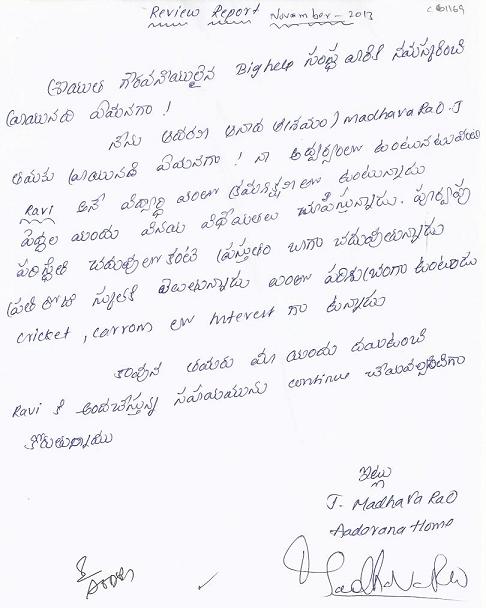 Review Report November - 2013
గౌరవనీయులైన Big help సంస్థ వారికి నమస్కరించి
వ్రాయునది ఏమనగా !
నేను ఆదరణ అనాధ ఆశ్రమం ) Madhava Rao . J
తమకు వ్రాయునది ఏమనగా ! నా ఆధ్వర్యంలో
Ravi అనే విద్యార్థి చాలా క్రమశిక్షణలో ఉంటున్నాడు
పెద్దల యందు వినయ విధేయతలు చూపిస్తున్నాడు. పూర్వపు
పరిస్థితి చదువులో కంటే ప్రస్తుతం బాగా చదువుతున్నాడు
ప్రతి రోజు స్కూలుకి వెలుతున్నాడు చాలా పరిశుభ్రంగా ఉంటాడు
cricket , carroms లో Interest గా ఉన్నాడు
కావున తమరు మా యందు దయవుంచి
Ravi కి అందచేస్తున్న సహాయమును continue చేయవలసినదిగా
కోరుతున్నాము
ఇట్లు
J. Madhava Rao
Aadarana Home
Madhava Rao